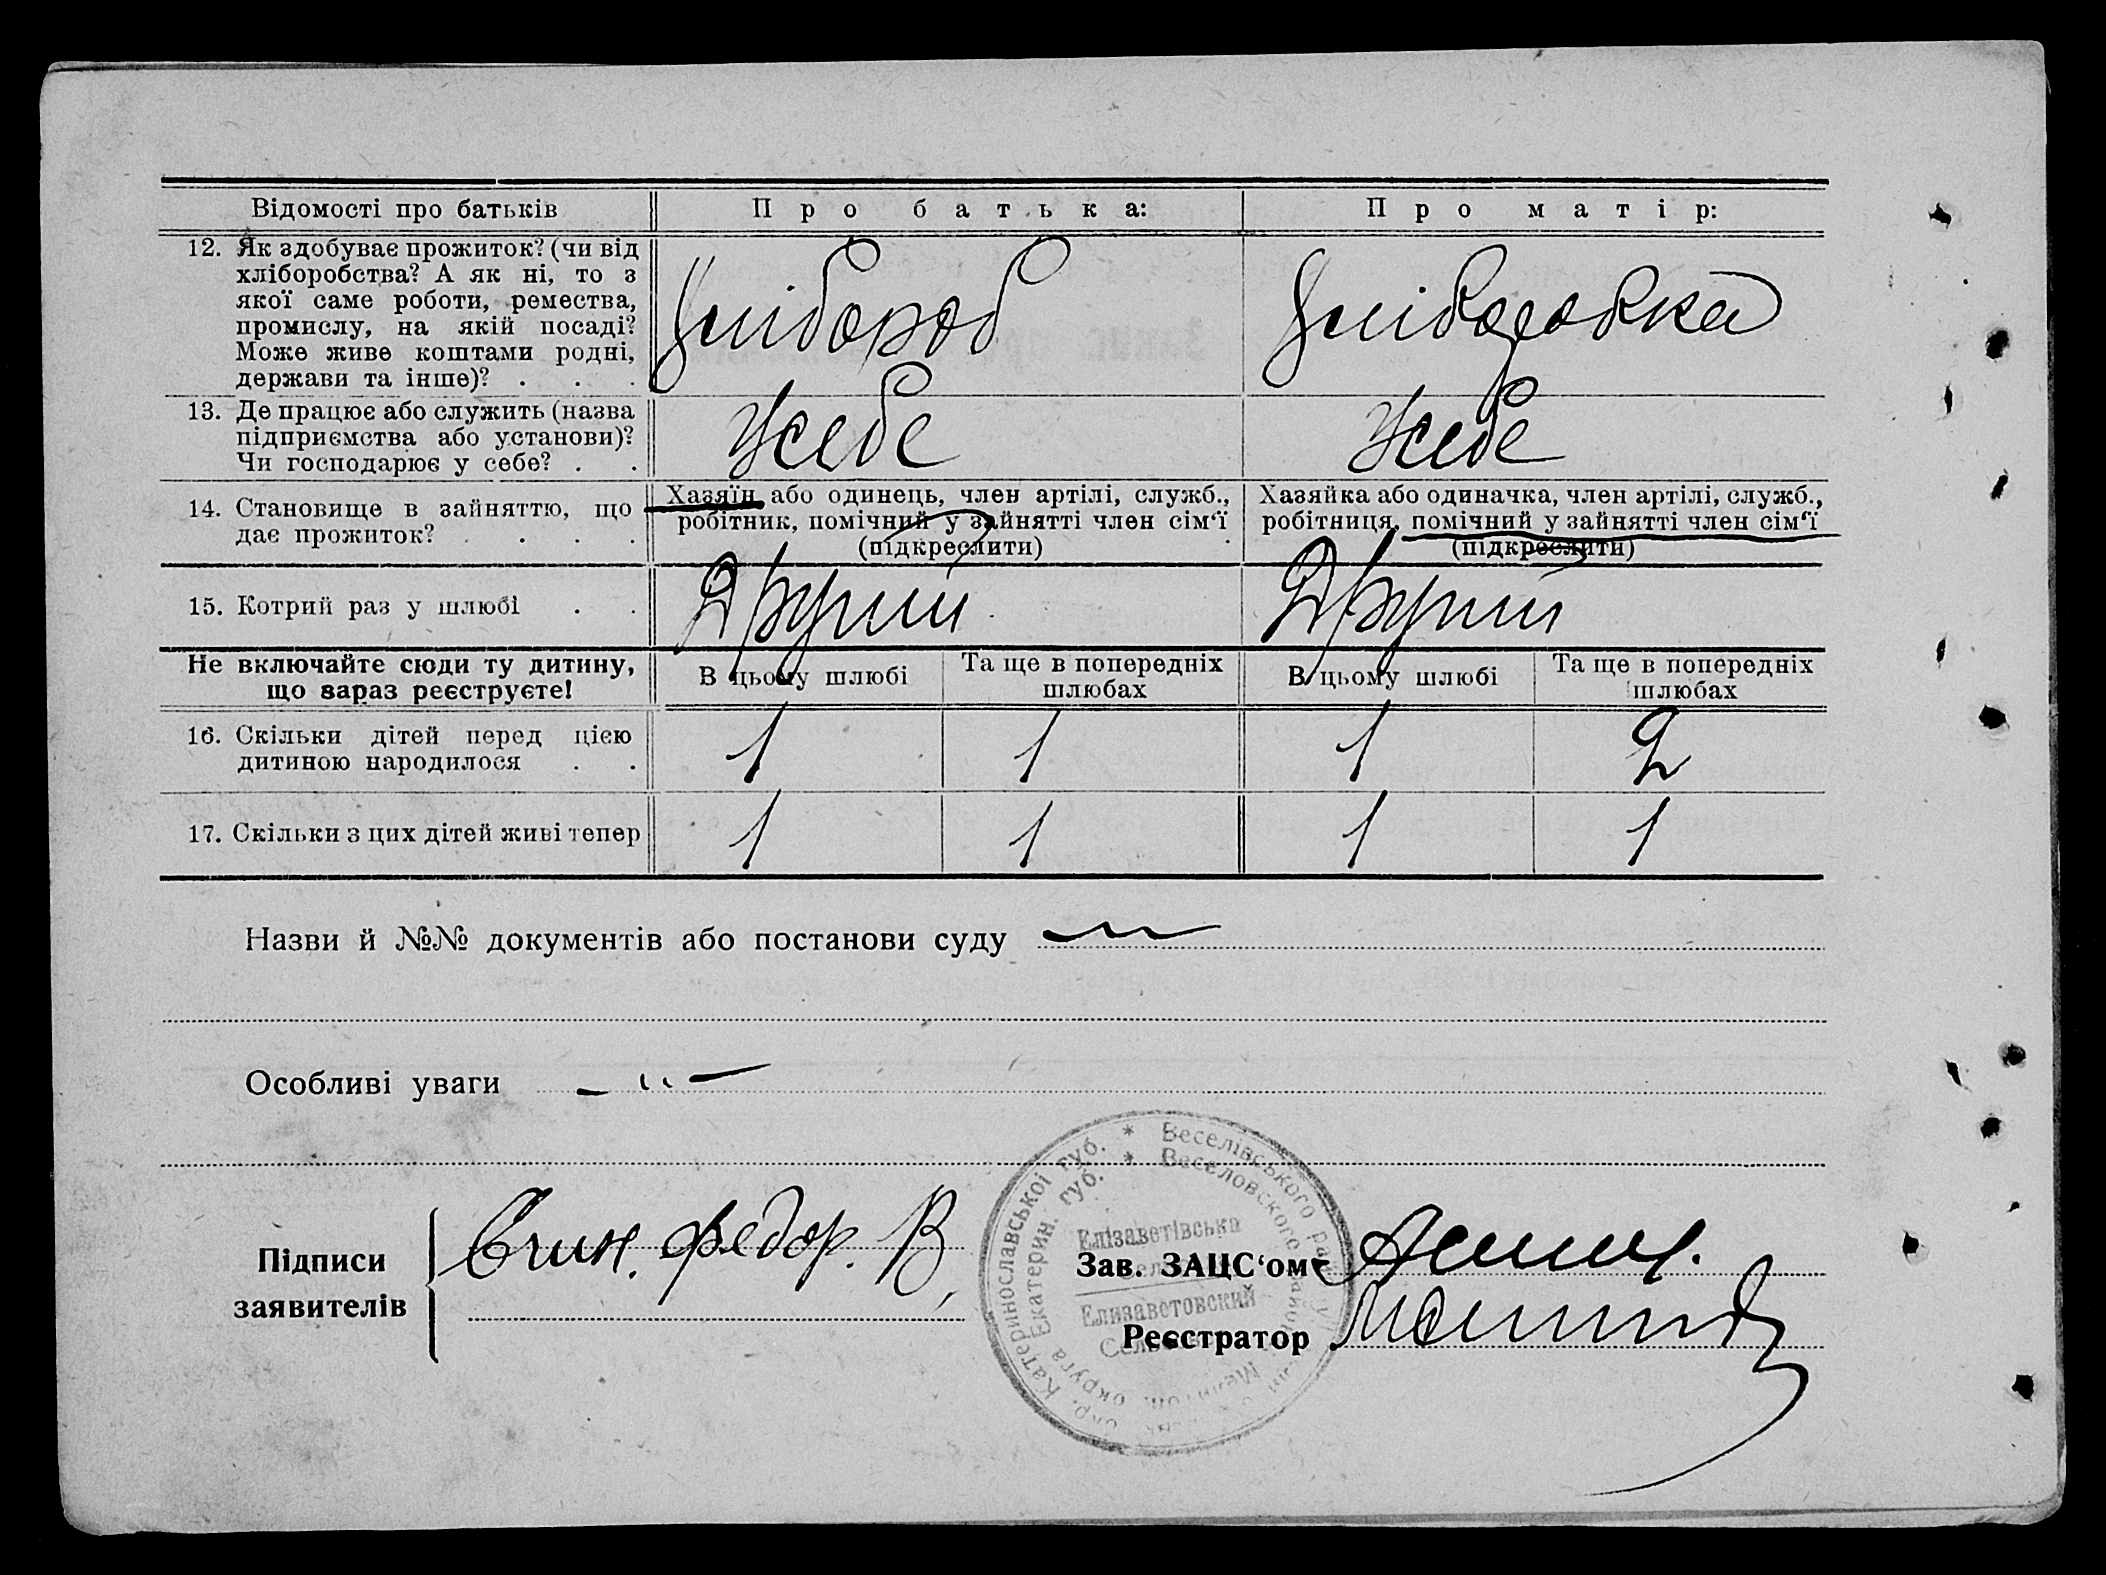 Відомості про батьків
Про батька:
Про матір:
12. Як здобуває прожиток? (чи від
хліборобства? А як ні, то з
якої саме роботи, ремества,
промислу, на якій посаді?
Може живе коштами родні,
держави та інше)? . . .
Хлібороб
Хліборобка
13. Де працює або служить (назва
підприємства або установи)?
Чи господарює у себе? . .
У себе
У себе
14. Становище в зайняттю, що
дає прожиток? . . . .
Хазяїн або одинець, член артілі, служб.,
робітник, помічний у зайнятті член сім‘ї
(підкреслити)
Хазяйка або одиначка, член артілі, служб.,
робітниця, помічний у зайнятті член сім‘ї
(підкреслити)
15. Котрий раз у шлюбі . .
Другий
Другий
Не включайте сюди ту дитину,
що зараз реєструєте!
В цьому шлюбі
Та ще в попередніх
шлюбах
В цьому шлюбі
Та ще в попередніх
шлюбах
16. Скільки дітей перед цією
дитиною народилося . .
1 1 1 2
17. Скільки з цих дітей живі тепер
1 1 1 1
Назви й №№ документів або постанови суду
Особливі уваги
Підписи
заявителів
Федор. В.
Зав. ЗАЦС‘ом
Реєстратор
окр. Катеринославської губ. * Веселівського
округа Екатерин. губ. * Веселовского
Елізаветівська
Елизаветовский